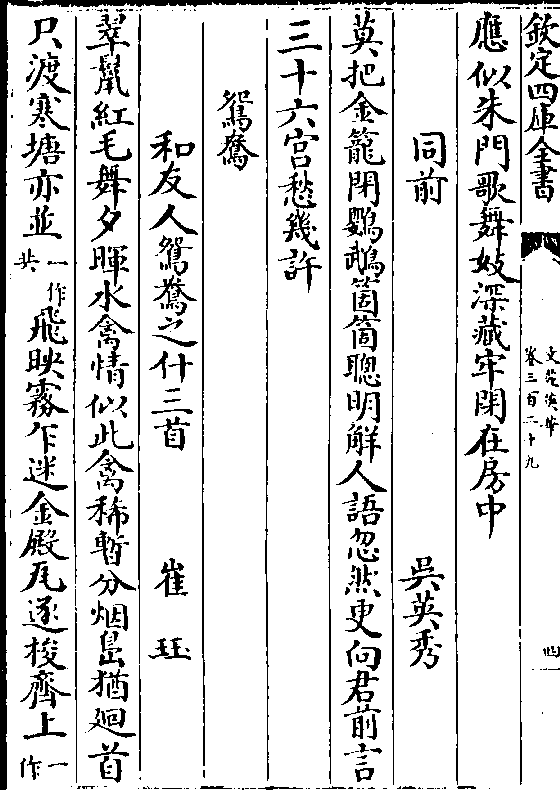 欽定四庫全書
文苑英華
卷三百二十九
四
應似朱門歌舞妓深藏牢閉在房中
同前 吳英秀
莫把金籠閉鸚鵡箇箇聰明解人語忽然更向君前言
三十六宮愁幾許
鴛鴦
和友人鴛鴦之什三首 崔珏
翠鬛紅毛舞夕暉水禽情似此禽稀暫分烟島猶廻首
只渡寒塘亦並一作共飛映霧乍迷金殿瓦逐梭齊上一作